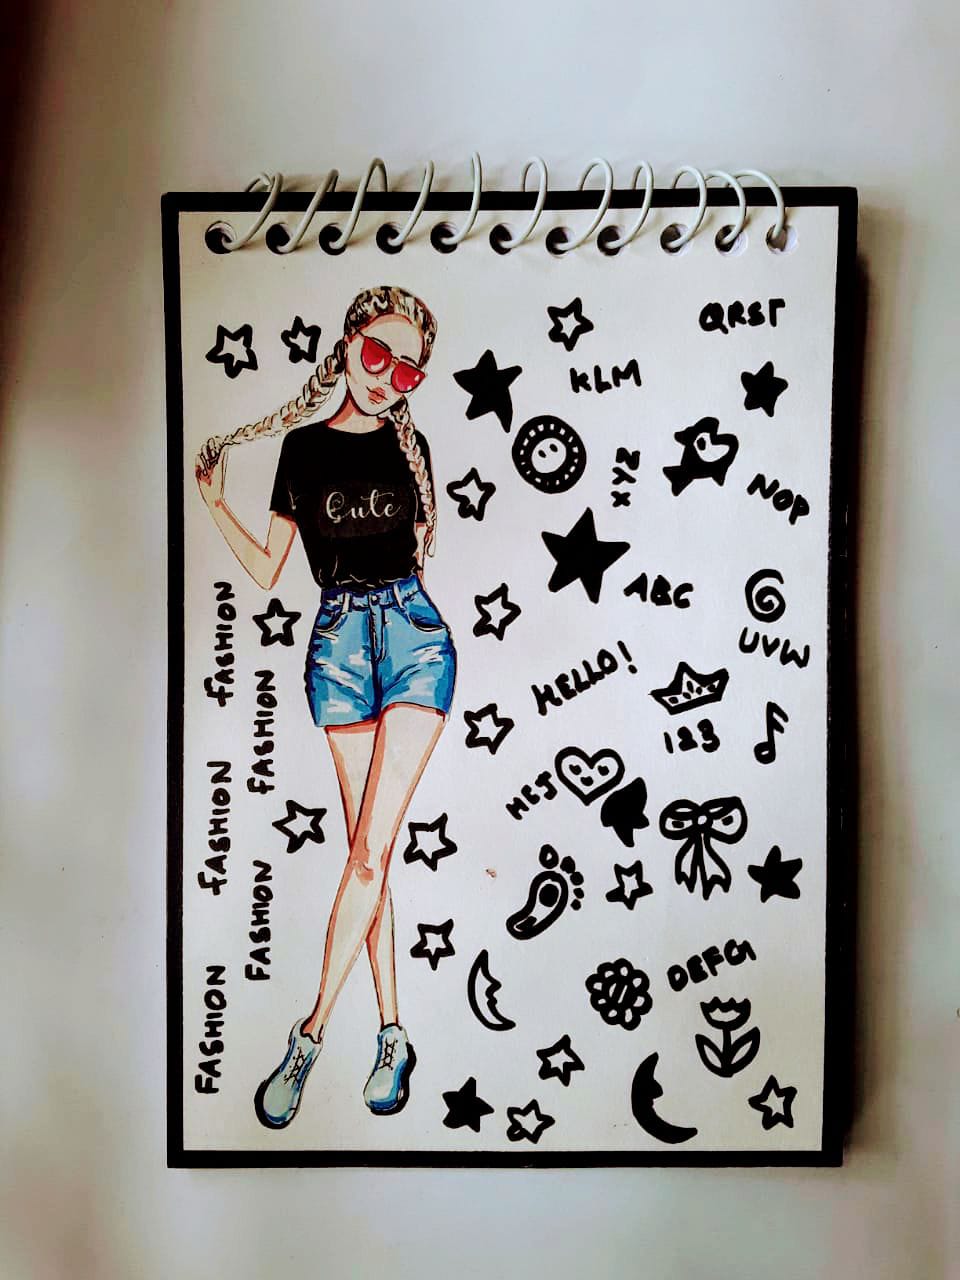 QRST
KLM
XYZ
NOP
Cute
ABC
UVW
HELLO!
123
HEJ
DEFG
FASHION
FASHION
FASHION
FASHION
FASHION